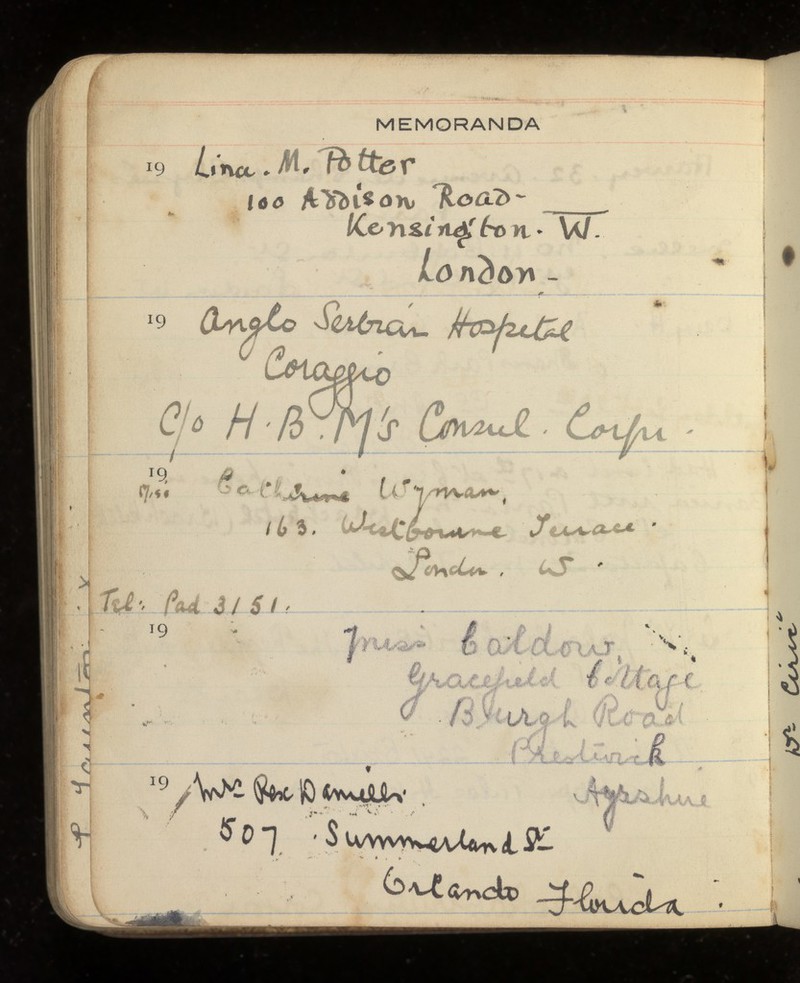 MEMORANDA
19 Lina. M. Potter
100 Addison Road-
Kensington. W.
London -
19 Anglo Serbian Hospital
Coraggio
C/o H.B.M's Consul. Corfu.
19 Miss Catherine Wyman,
163. Westbourne Terrace.
London. W.
Tel: Pad 3151.
19 Miss Caldow,
Gracefield Cottage
Burgh Road
Prestwick
Ayrshire
19 Mrs Rex Danielli.
507. Summerland St
Orlando Florida.
Taunton